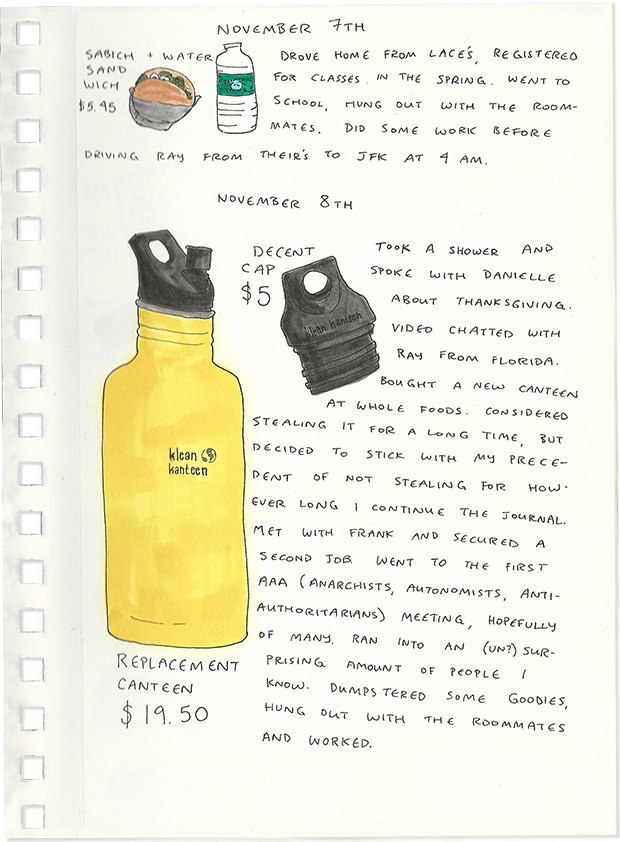 NOVEMBER 7TH
SABICH + WATER
SAND
WICH
$5.45
DROVE HOME FROM LACE'S, REGISTERED
FOR CLASSES IN THE SPRING. WENT TO
SCHOOL, HUNG OUT WITH THE ROOM-
MATES. DID SOME WORK BEFORE
DRIVING RAY FROM THEIR'S TO JFK AT 4 AM.
NOVEMBER 8TH
DECENT
CAP
$5
klean kanteen
klean
kanteen
REPLACEMENT
CANTEEN
$19.50
TOOK A SHOWER AND
SPOKE WITH DANIELLE
ABOUT THANKSGIVING.
VIDEO CHATTED WITH
RAY FROM FLORIDA.
BOUGHT A NEW CANTEEN
AT WHOLE FOODS. CONSIDERED
STEALING IT FOR A LONG TIME, BUT
DECIDED TO STICK WITH MY PRECE-
DENT OF NOT STEALING FOR HOW-
EVER LONG I CONTINUE THE JOURNAL.
MET WITH FRANK AND SECURED A
SECOND JOB. WENT TO THE FIRST
AAA (ANARCHISTS, AUTONOMISTS, ANTI-
AUTHORITARIANS) MEETING, HOPEFULLY
OF MANY. RAN INTO AN (UN?) SUR-
PRISING AMOUNT OF PEOPLE I
KNOW. DUMPSTERED SOME GOODIES,
HUNG OUT WITH THE ROOMMATES
AND WORKED.